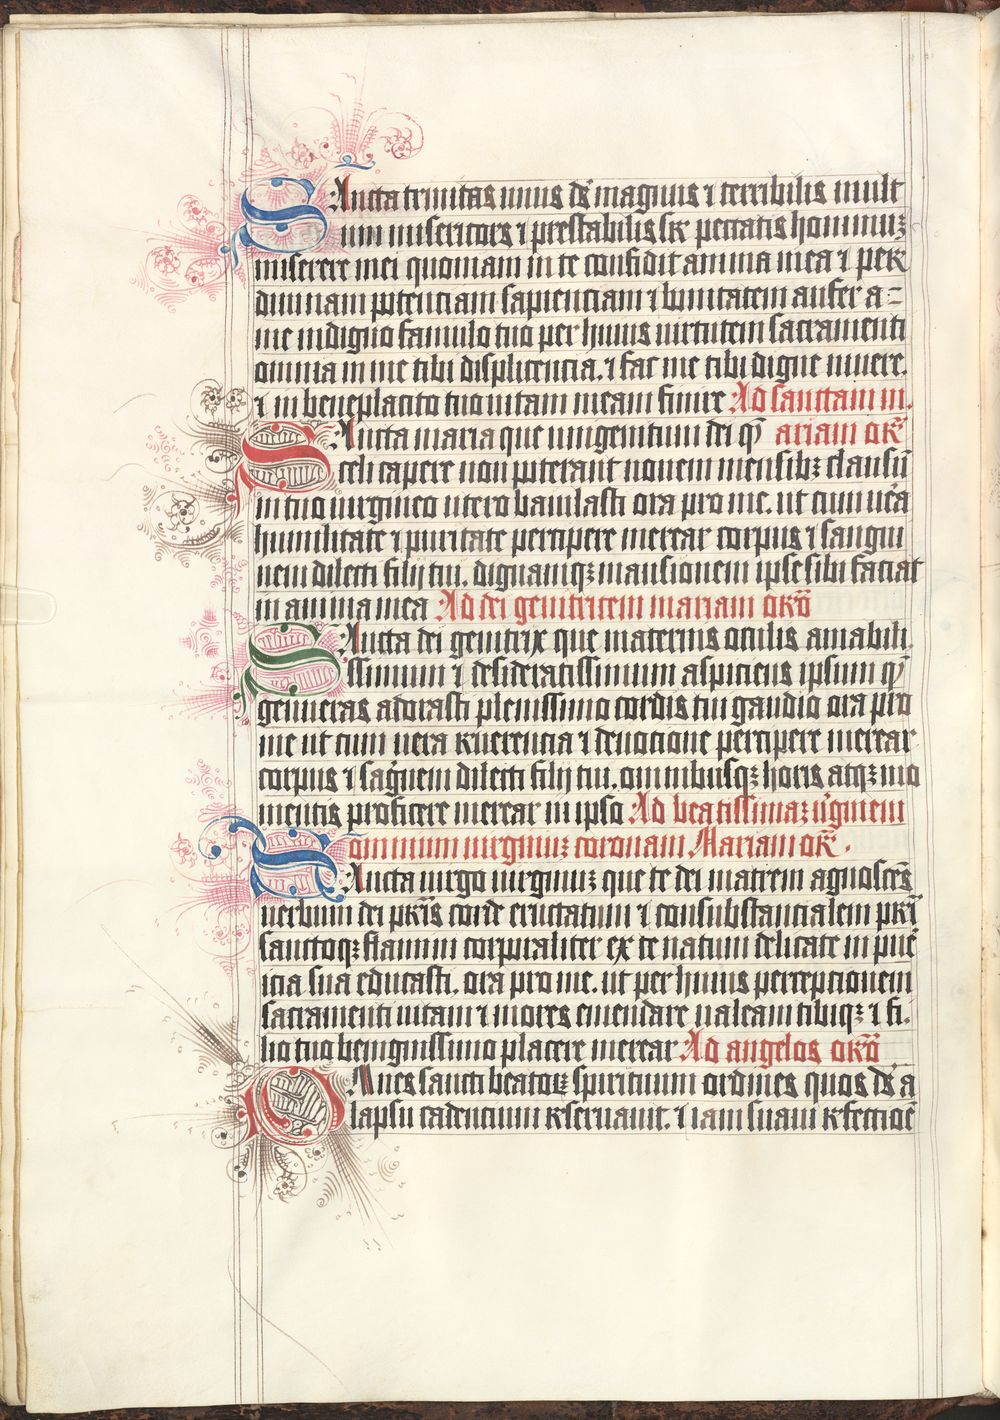 SAncta trinitas unus ds magnus ⁊ terribilis mult
um misericors ⁊ prestabilis sr peccatis hominuꝫ
miserere mei quoniam in te confidit anima mea ⁊ per
diuinam potenciam sapienciam ⁊ bonitatem aufer a
me indigno famulo tuo per huius uirtutem sacramenti
omnia in me tibi displicencia. ⁊ fac me tibi digne uiuere.
⁊ in beneplacito tuo uitam meam finire Ad sanctam m.
SAncta maria que unigenitum dei qm̄ ariam orō
celi capere non poterant nouem mensibꝫ clausū
in tuo uirgineo utero baiulasti ora pro me. ut cum uēa
humilitate ⁊ puritate percipere merear corpus ⁊ sangui
nem dilecti filij tui. dignamqꝫ mansionem ipse sibi faciat
in anima mea Ad dei genitricem mariam orō
SAncta dei genitrix que maternis oculis amabili
ssimum ⁊ desideratissimum aspiciens ipsum qm̄
genueras adorasti plenissimo cordis tui gaudio ora pro
me ut cum uera reuerencia ⁊ deuocione percipere merear
corpus ⁊ sāgnem dilecti filij tui. omnibusqꝫ horis atqꝫ mo
mentis proficere merear in ipso Ad beatissimaꝫ uⁱginem
omnium uirginuꝫ coronam Mariam orō.
SAncta uirgo uirginuꝫ que te dei matrem agnoscēs
uerbum dei pr̄is corde eructatum ⁊ consubstancialem pr̄i
sanctoqꝫ flamini corporaliter ex te natum delicate in puē
icia sua educasti. ora pro me. ut per huius percepcionem
sacramenti uitam ⁊ mores emendare ualeam tibiqꝫ ⁊ fi.
lio tuo benignissimo placere merear Ad angelos orō
OMnes sancti beatoꝝ spirituum ordines quos ds a
lapsu cadencium reseruauit. ⁊ iam suaui refectiōe